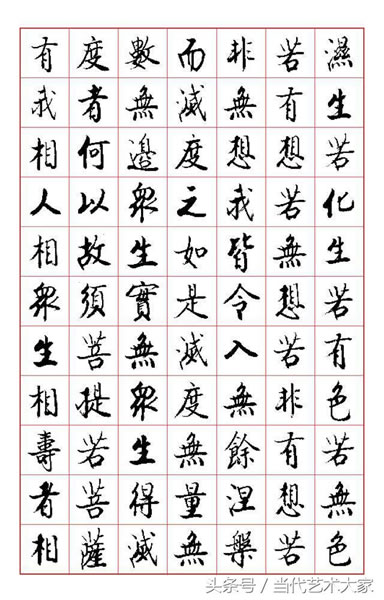 濕生若化生若有色若無色
若有想若無想若非有想若
非無想我皆令入無餘涅槃
而滅度之如是滅度無量無
數無邊眾生實無眾生得滅
度者何以故須菩提若菩薩
有我相人相眾生相壽者相
头条号 / 当代艺术大家